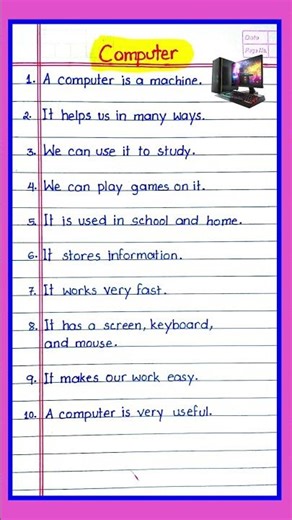 Computer
Date
Page No.
1. A computer is a machine.
2. It helps us in many ways.
3. We can use it to study.
4. We can play games on it.
5. It is used in school and home.
6. It stores information.
7. It works very fast.
8. It has a screen, keyboard,
and mouse.
9. It makes our work easy.
10. A computer is very useful.